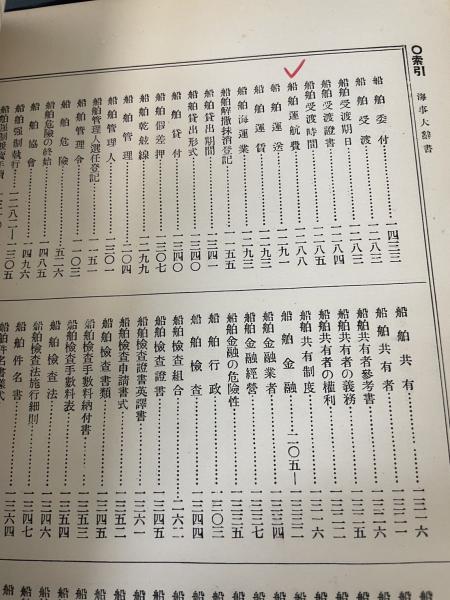 〇索引
海事大辭書
船舶委付……一四三三
船舶受渡……一二八三
船舶受渡期日……一二八三
船舶受渡證書……一二八四
船舶受渡時間……一二八八
船舶運航費……一二八八
船舶運送……一二九一
船舶運賃……一二九三
船舶海運業……一二九三
船舶解撤抹消登記……一一五五
船舶貸出期間……一三四一
船舶貸出形式……一三四〇
船舶貸付……一三四〇
船舶假差押……一三〇七
船舶乾舷線……一二九九
船舶管理……二〇四
船舶管理人……一三〇一
船舶管理人選任登記……一一五一
船舶管理令……一一〇三
船舶危險……五二六
船舶危險の終始……四八五
船舶協會……四九六
船舶強制執行……一二八二—一三〇五
船舶共有……一三一六
船舶共有者……一三二一
船舶共有者參考書……一三二五
船舶共有者の義務……一三二二
船舶共有者の權利……一三二二
船舶共有制度……一三一六
船舶金融……二〇五—一三三一
船舶金融業者……一三三四
船舶金融經營……一三三七
船舶金融の危險性……一三三五
船舶行政……三〇三
船舶檢查……一三四四
船舶檢查組合……一六二
船舶檢查證書……一三五四
船舶檢查證書英譯書……一三六一
船舶檢查申請書式……一三五二
船舶檢查書類……一三五四
船舶檢查手數料納付書……一三五三
船舶檢查手數料表……一三五四
船舶檢查法……一三四六
船舶檢查法施行細則……一三四七
船舶件名書……一三六四
船舶件名書樣式